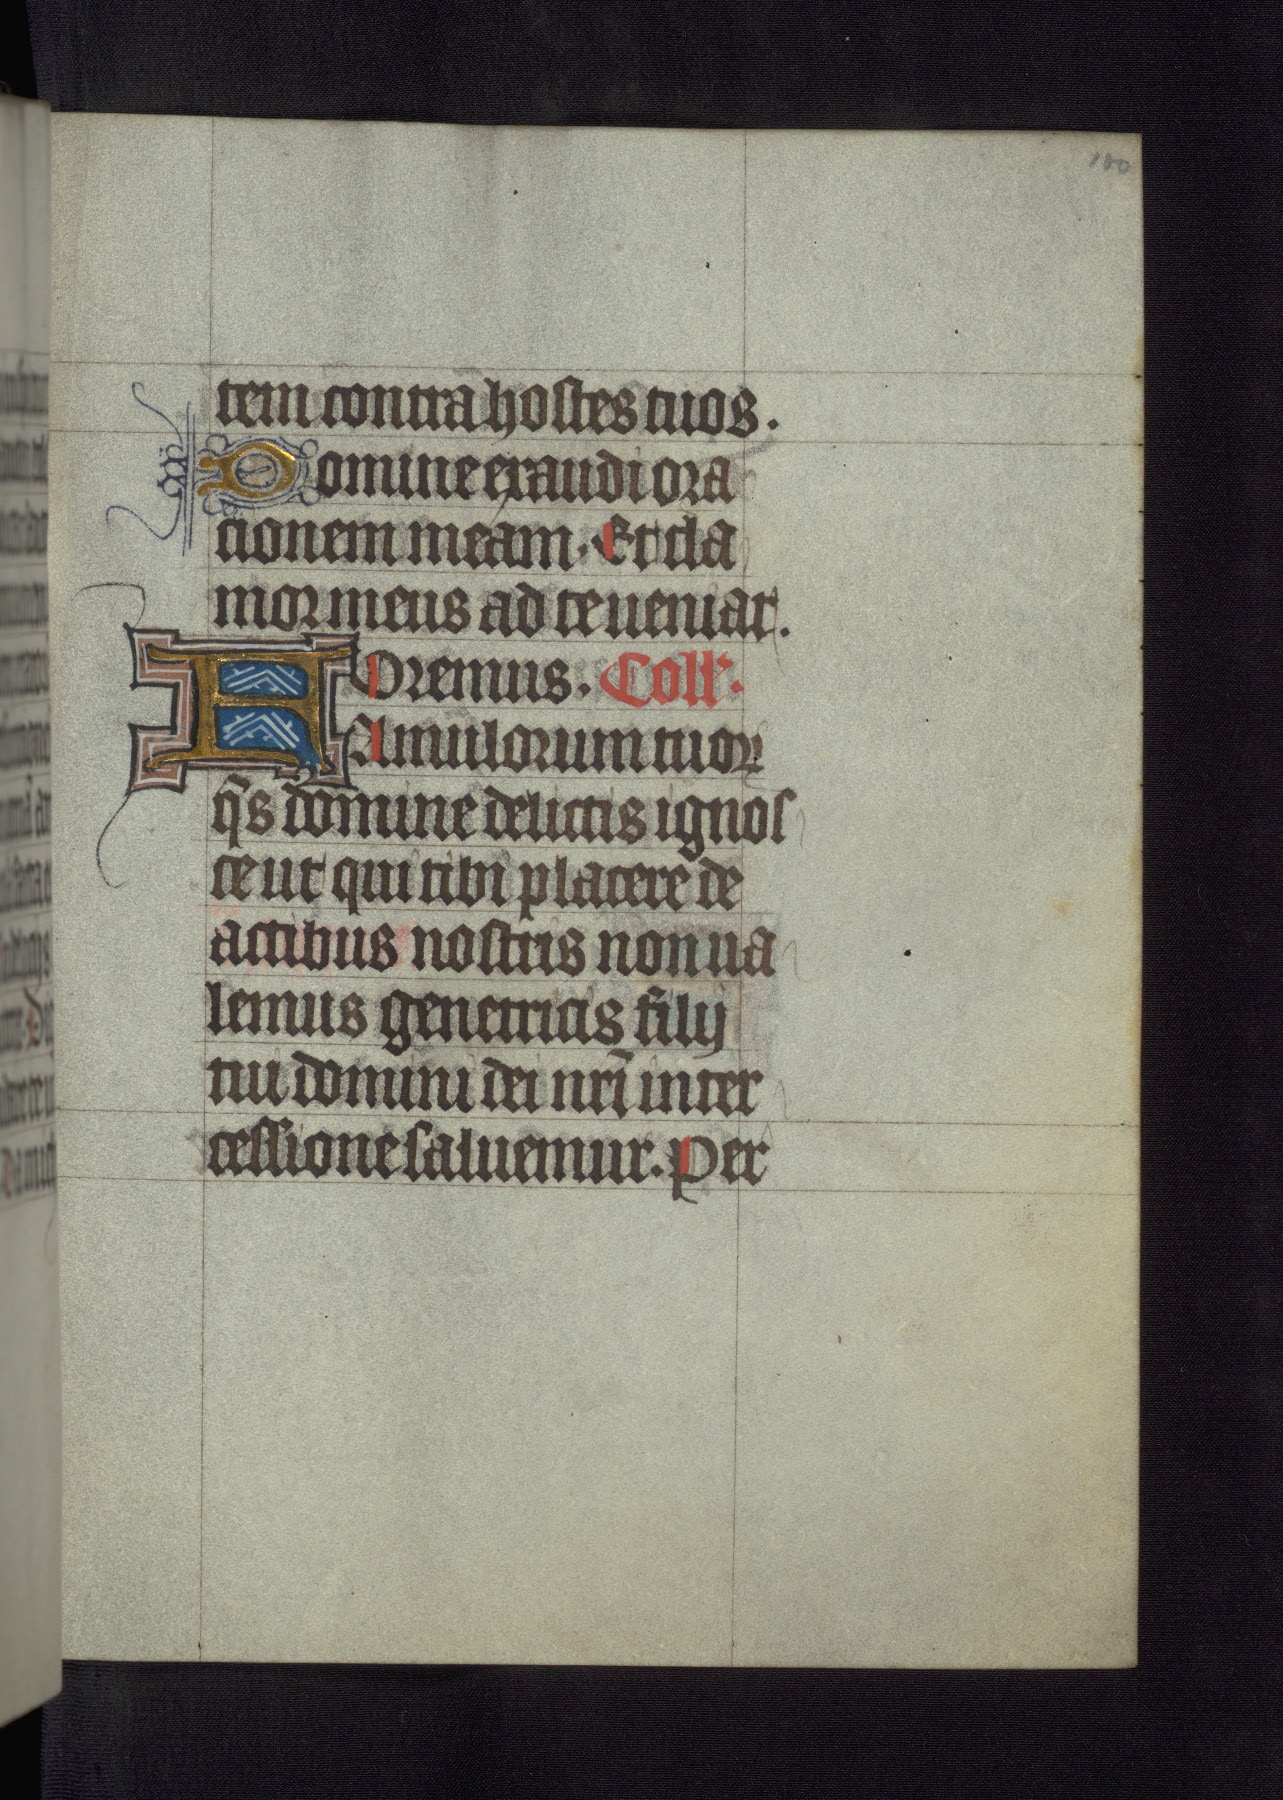 180
tem contra hostes tuos.
Domine exaudi ora
tionem meam. Et cla
mor meus ad te ueniat.
Oremus. Coll'.
FAmulorum tuoꝝ
qs̄ domine delictis ignos
ce ut qui tibi placere de
actibus nostris non ua
lemus genetricis filij
tui domini dei nr̄i inter
cessione saluemur. Per